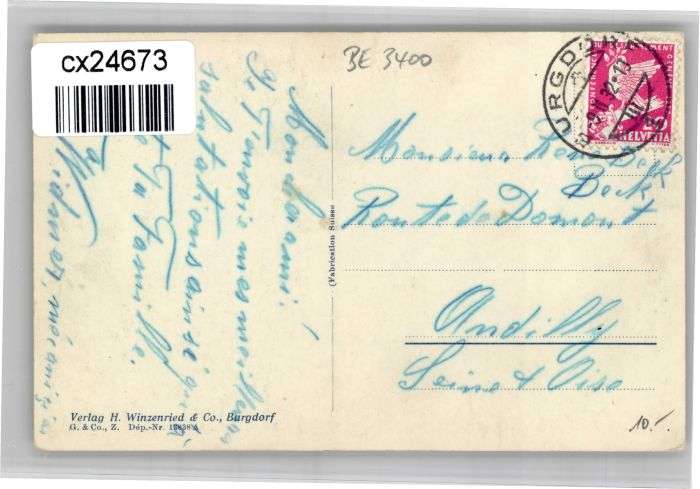 cx24673
BE 3400
BURGDORF
HELVETIA
Mon cher ami!
Je t'envoie mes meilleurs
salutations ainsi qu'à
Ta Famille.
Widmer, mécanicien
Monsieur René Beck
Beck
Route de Domont
Andilly
Seine & Oise
(Fabrication Suisse)
Verlag H. Winzenried & Co., Burgdorf
G. & Co., Z. Dép.-Nr.
10.-